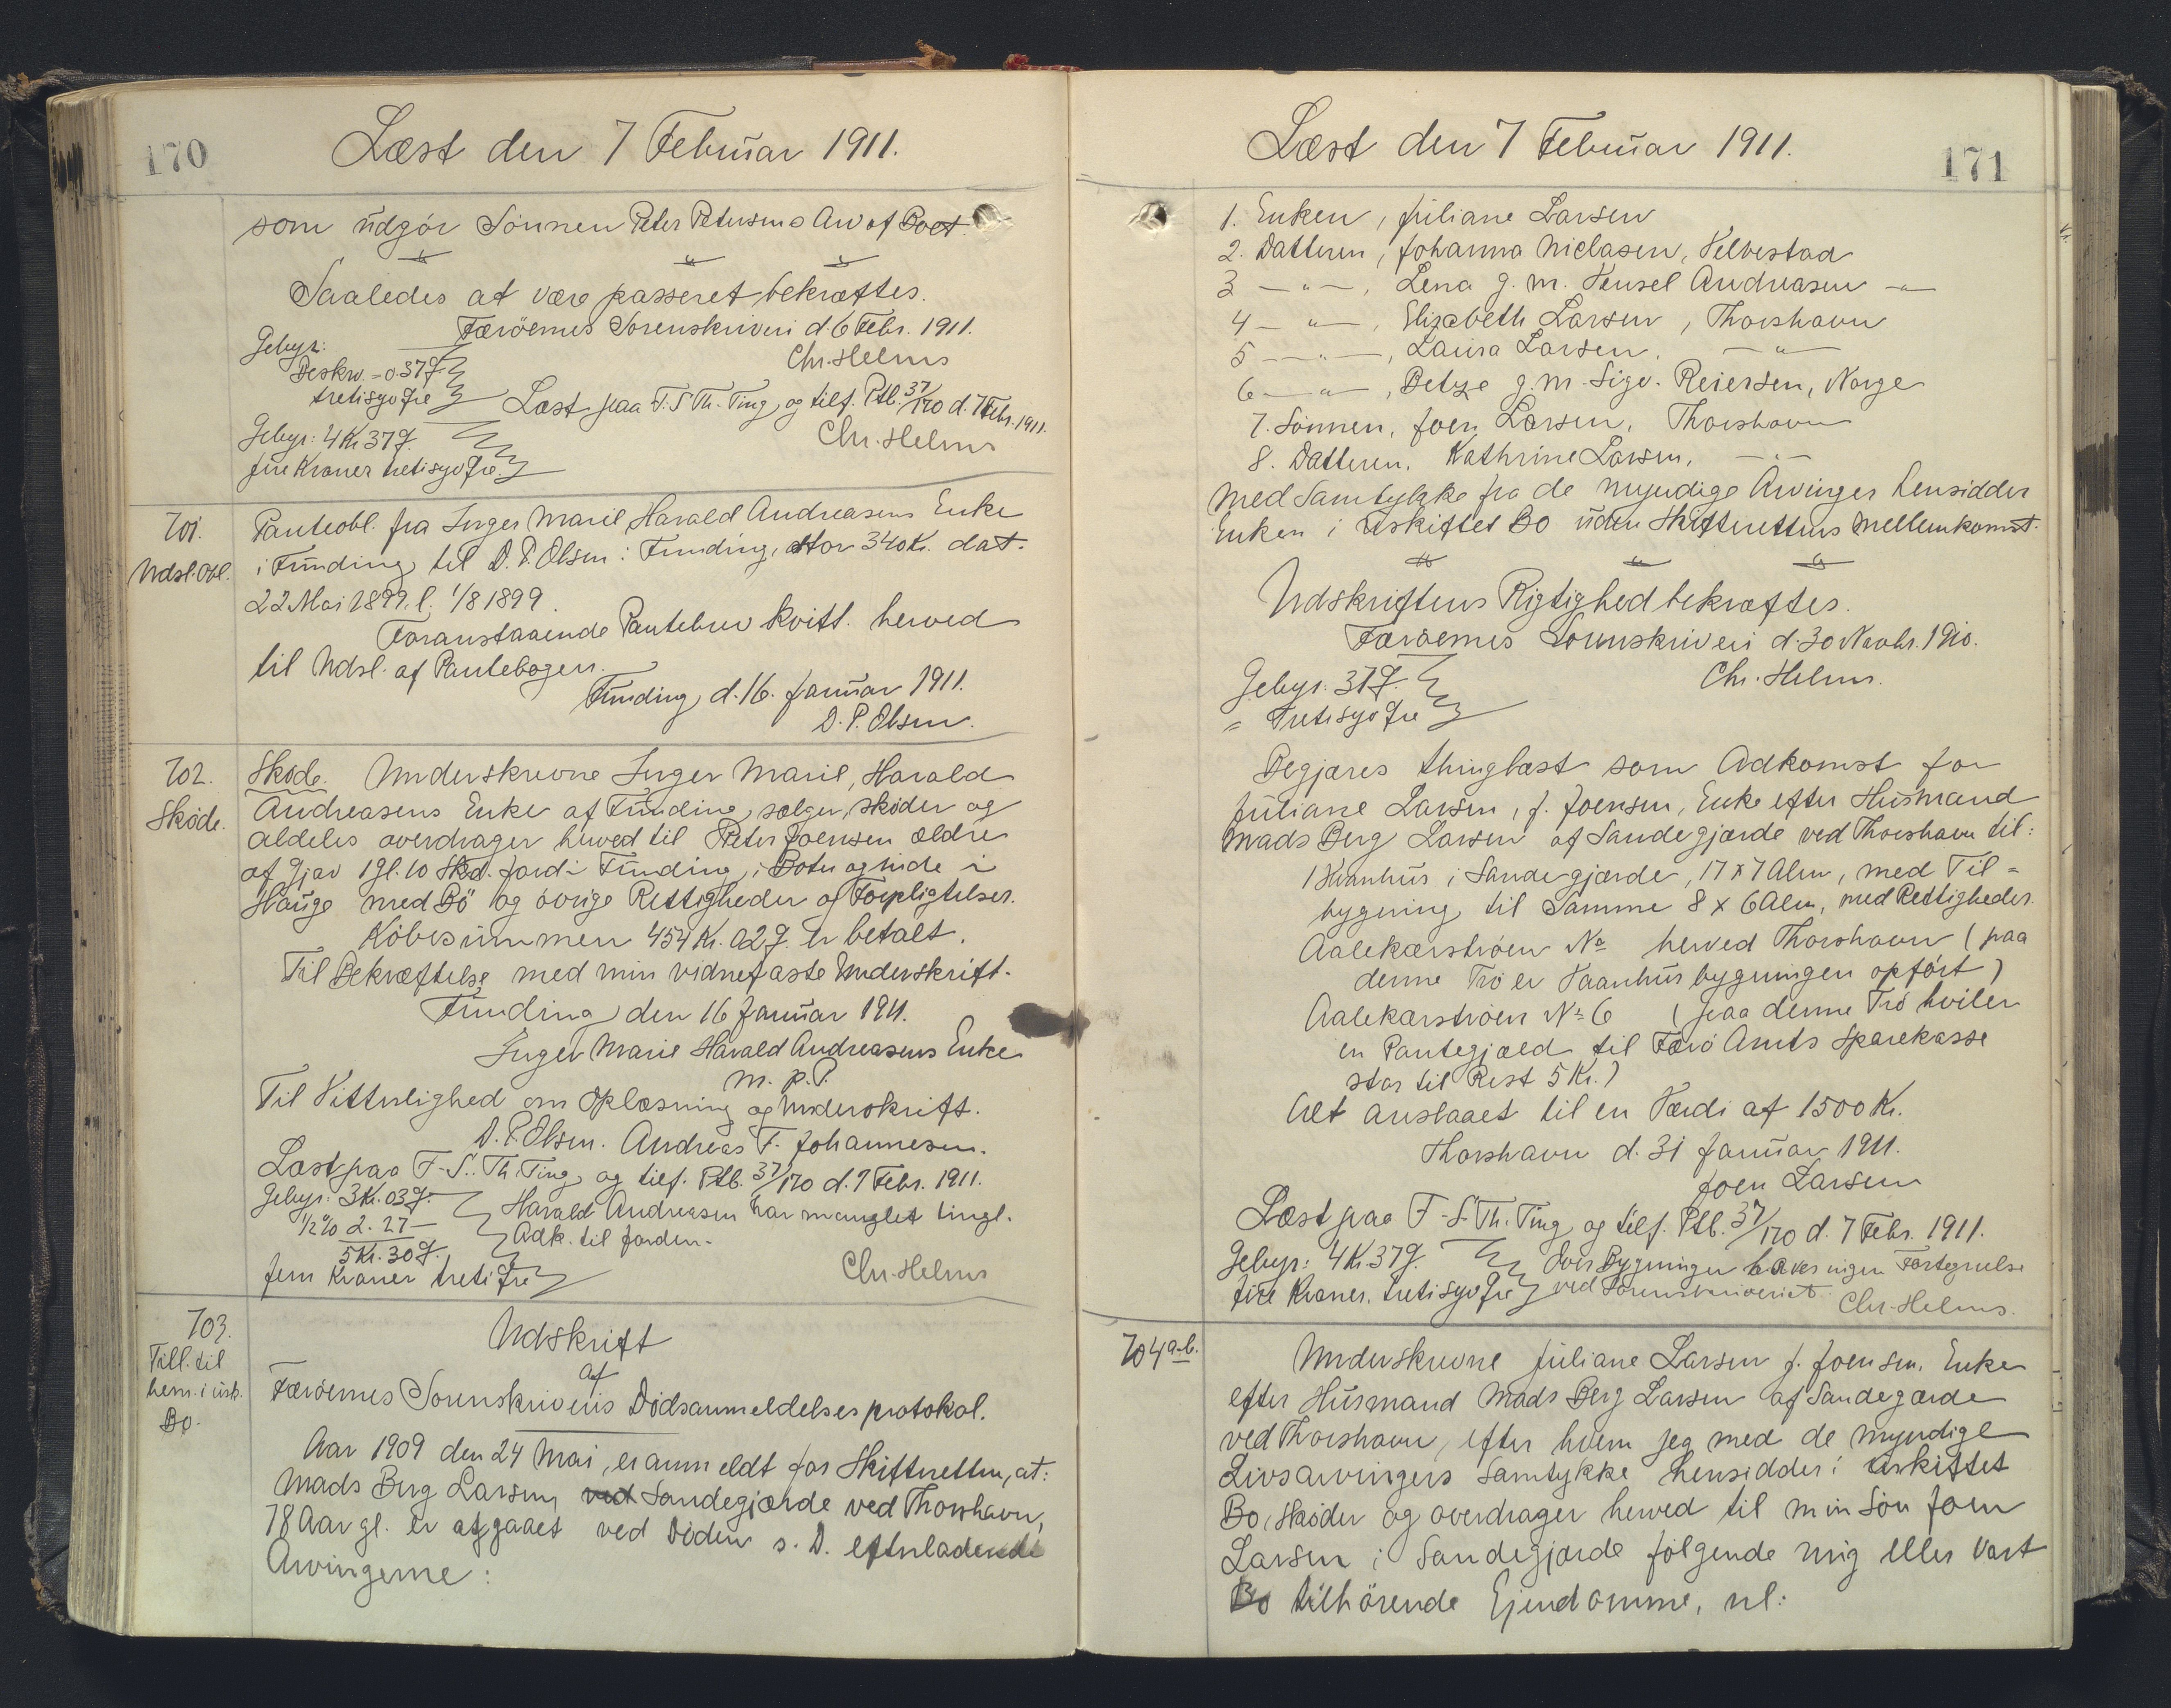 170
Læst den 7 Februar 1911.
som udgør Sønnen Peter Petersens Arv af Boet.
Saaledes at være passeret bekræftes.
Færöernes Sorenskriveri d. 6 Febr. 1911.
Chr. Helms
Gebyr:
Beskr. - 0.37 Ø
tretisyv Øre
Læst paa F. S. Th. Ting og tilf. Ptb. 37/170 d. 7 Febr. 1911.
Chr. Helms
Gebyr: 4 Kr 37 Ø.
fire Kroner tretisyv Øre
701.
Udsl. Obl.
Panteobl. fra Inger Marie Harald Andreasens Enke
i Funding til D. P. Olsen i Funding, stor 340 Kr. dat.
22 Mai 1899. l. 1/8 1899.
Foranstaaende Pantebrev kvitt. herved
til Udsl. af Pantebogen.
Funding d. 16. Januar 1911.
D. P. Olsen.
702.
Skøde.
Skøde. Underskrevne Inger Marie, Harald
Andreasens Enke af Funding sælger, skøder og
aldeles overdrager herved til Peter Joensen ældre
af Gjov 1 gl. 10 Skd. Jord i Funding, i Boter og inde i
Hauge med Bö og övrige Rettigheder og Forpligtelser.
Köbesummen 454 Kr. 02 Ø. er betalt.
Til Bekræftelse med min vidnefaste Underskrift.
Funding den 16 Januar 1911.
Inger Marie Harald Andreasens Enke
m. p. P.
Til Vitterlighed om Oplæsning og Underskrift.
D. P. Olsen. Andreas F. Johannesen.
Læst paa F. S. Th. Ting og tilf. Ptb. 37/170 d. 7 Febr. 1911.
Gebyr: 3 Kr. 03 Ø.
1/2 % 2. 27 —
5 Kr. 30 Ø.
fem Kroner treti Øre
Harald Andreasen har manglet tingl.
Adk. til Jorden.
Chr. Helms
703.
Till. til
hens. i usk.
Bo.
Udskrift
af
Færöernes Sorenskriveris Dödsanmeldelsesprotokol.
Aar 1909 den 24 Mai, er anmeldt for Skifteretten, at:
Mads Berg Larsen, ved Sandegjærde ved Thorshavn,
78 Aar gl. er afgaaet ved Döden s. D. efterladende
Arvingerne:
Læst den 7 Februar 1911.
171
1. Enken, Juliane Larsen
2. Datteren, Johanna Niclasen, Velbestad
3 — " —, Lena g. m. Hensel Andreasen — " —
4 — " —, Elizabeth Larsen, Thorshavn
5 — " —, Laura Larsen, — " —
6 — " —, Betze g. m. Sigv. Reiersen, Norge
7. Sønnen, Joen Larsen, Thorshavn
8. Datteren, Kathrine Larsen, — " —
Med Samtykke fra de myndige Arvinger hensidder
Enken i uskiftet Bo uden Skifterettens Mellemkomst.
Udskriftens Rigtighed bekræftes.
Færöernes Sorenskriveri d. 30 Novbr. 1910.
Chr. Helms.
Gebyr: 37 Ø.
= Tretisyv Øre
Begjæres thinglæst som Adkomst for
Juliane Larsen, f. Joensen, Enke efter Husmand
Mads Berg Larsen af Sandegjærde ved Thorshavn til:
1 Vaanhus i Sandegjærde, 17 x 7 Alen, med Til=
bygning til Samme 8 x 6 Alen, med Rettigheder.
Aalekærströen No herved Thorshavn (paa
denne Trö er Vaanhusbygningen opfört)
Aalekærströen No 6 (paa denne Trö hviler
en Pantegjæld til Færö Amts Sparekasse
stor til Rest 5 Kr.)
Alt anslaaet til en Værdi af 1500 Kr.
Thorshavn d. 31 Januar 1911.
Joen Larsen
Læst paa F. S. Th. Ting og tilf. Ptb. 37/170 d. 7 Febr. 1911.
Gebyr: 4 Kr. 37 Ø.
fire Kroner, tretisyv Øre
Over Bygningen haves ingen Fortegnelse
ved Sorenskriveriet.
Chr. Helms.
704 a-b.
Underskrevne Juliane Larsen f. Joensen, Enke
efter Husmand Mads Berg Larsen af Sandegærde
ved Thorshavn, efter hvem jeg med de myndige
Livsarvingers Samtykke hensidder i uskiftet
Bo, skøder og overdrager herved til min Sön Joen
Larsen i Sandegjærde følgende mig eller vort
Bo tilhörende Ejendomme, nl: